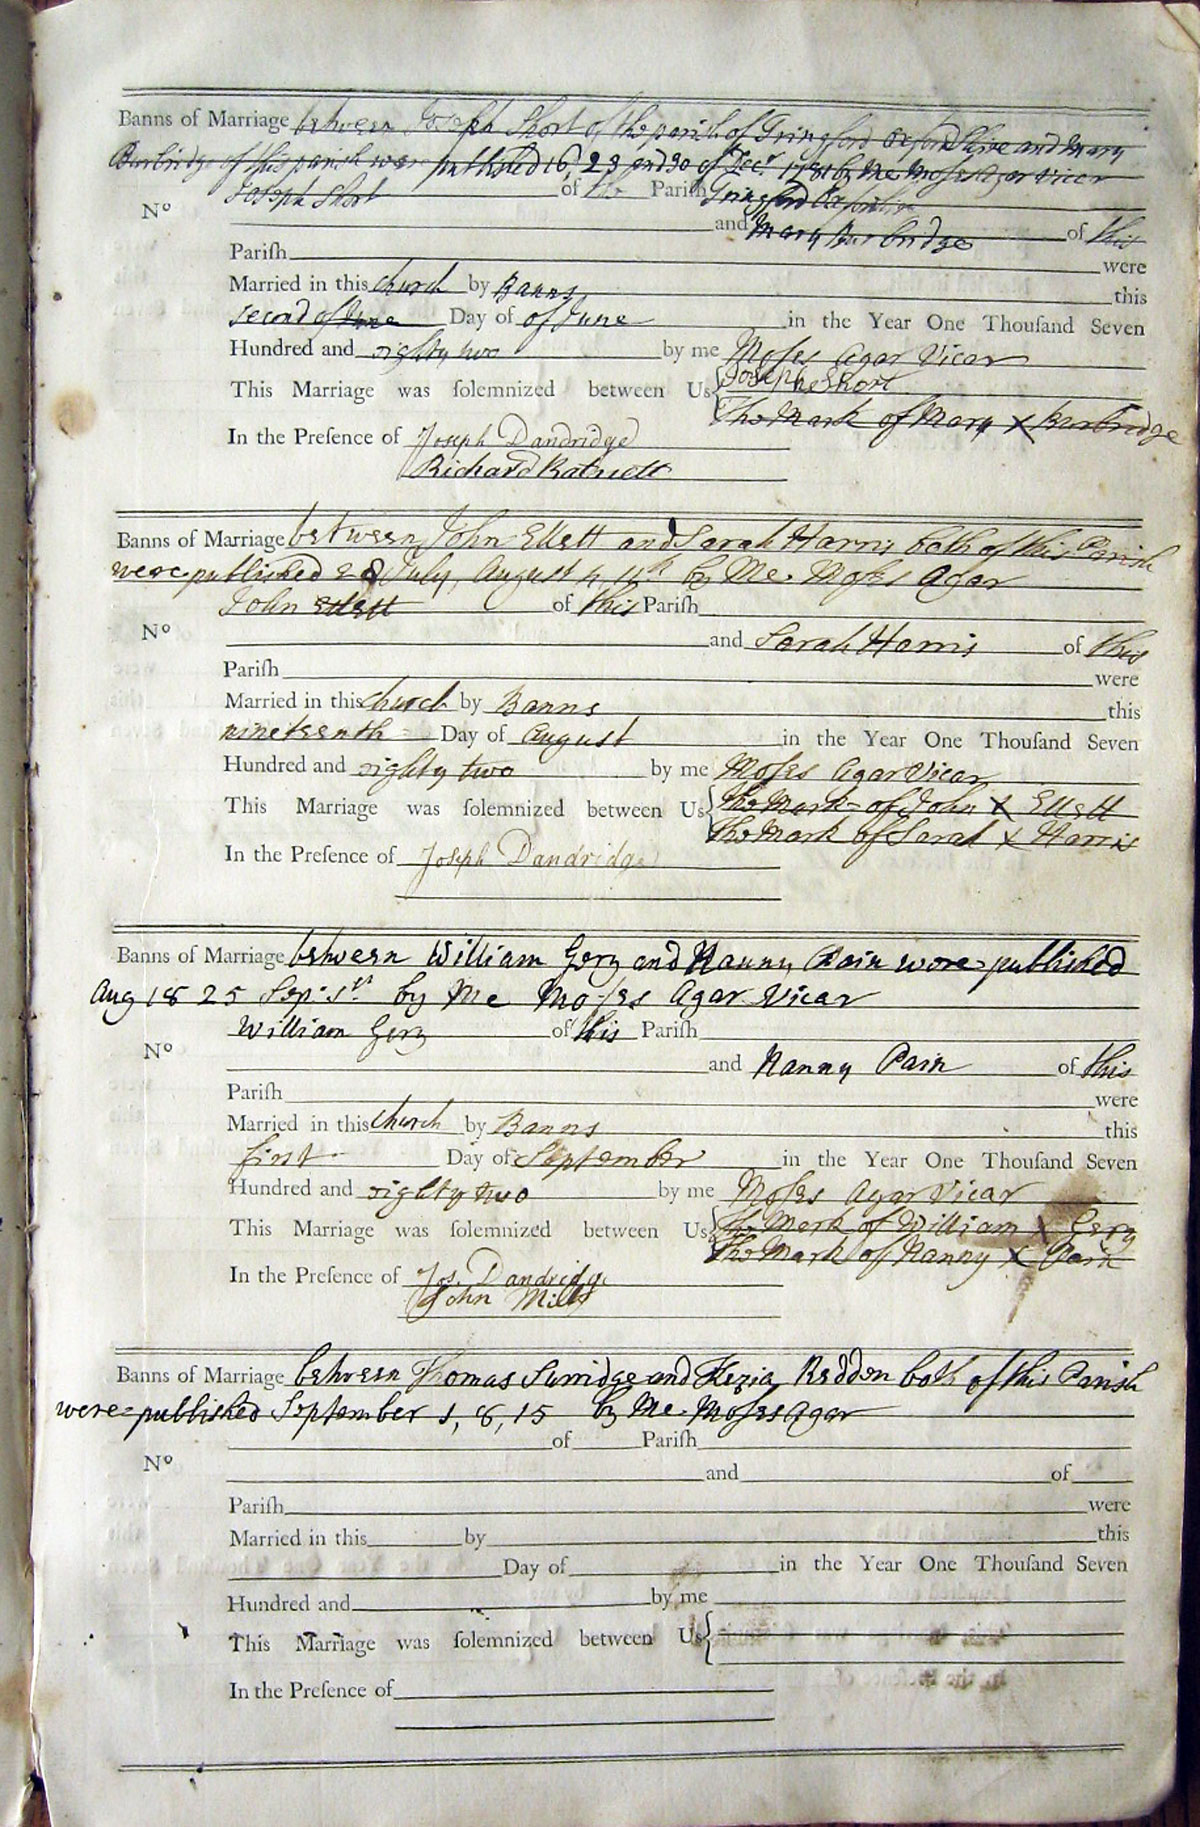 Banns of Marriage between Joseph Short of the parish of Fringford Oxfordshire and Mary
Burbridge of this parish were published 16, 23 and 30 of Decr 1781 by Me Moses Agar Vicar
Joseph Short of the Pariſh Fringford Oxfordshire
No and Mary Burbridge of this
Pariſh were
Married in this Church by Banns this
second of June Day of of June in the Year One Thouſand Seven
Hundred and eighty two by me Moses Agar Vicar
This Marriage was ſolemnized between Us Joseph Short
The Mark of Mary X Burbridge
In the Preſence of Joseph Dandridge
Richard
Banns of Marriage between John Ellett and Sarah Harris both of this Parish
were published 28 July, August 4, 11th by Me Moses Agar
John Ellett of this Pariſh
No and Sarah Harris of this
Pariſh were
Married in this Church by Banns this
nineteenth Day of August in the Year One Thouſand Seven
Hundred and eighty two by me Moses Agar Vicar
This Marriage was ſolemnized between Us The Mark of John X Ellett
The Mark of Sarah X Harris
In the Preſence of Joseph Dandridge
Banns of Marriage between William Gery and Nanny Pain were published
Aug 18 25 Sep. 1st by Me Moses Agar Vicar
William Gery of this Pariſh
No and Nanny Pain of this
Pariſh were
Married in this Church by Banns this
first Day of September in the Year One Thouſand Seven
Hundred and eighty two by me Moses Agar Vicar
This Marriage was ſolemnized between Us The Mark of William X Gery
The Mark of Nanny X Pain
In the Preſence of Jos. Dandridge
John Mills
Banns of Marriage between Thomas Surridge and Kezia Redden both of this Parish
were published September 1, 8, 15 by Me Moses Agar
of Pariſh
No and of
Pariſh were
Married in this by this
Day of in the Year One Thouſand Seven
Hundred and by me
This Marriage was ſolemnized between Us
In the Preſence of